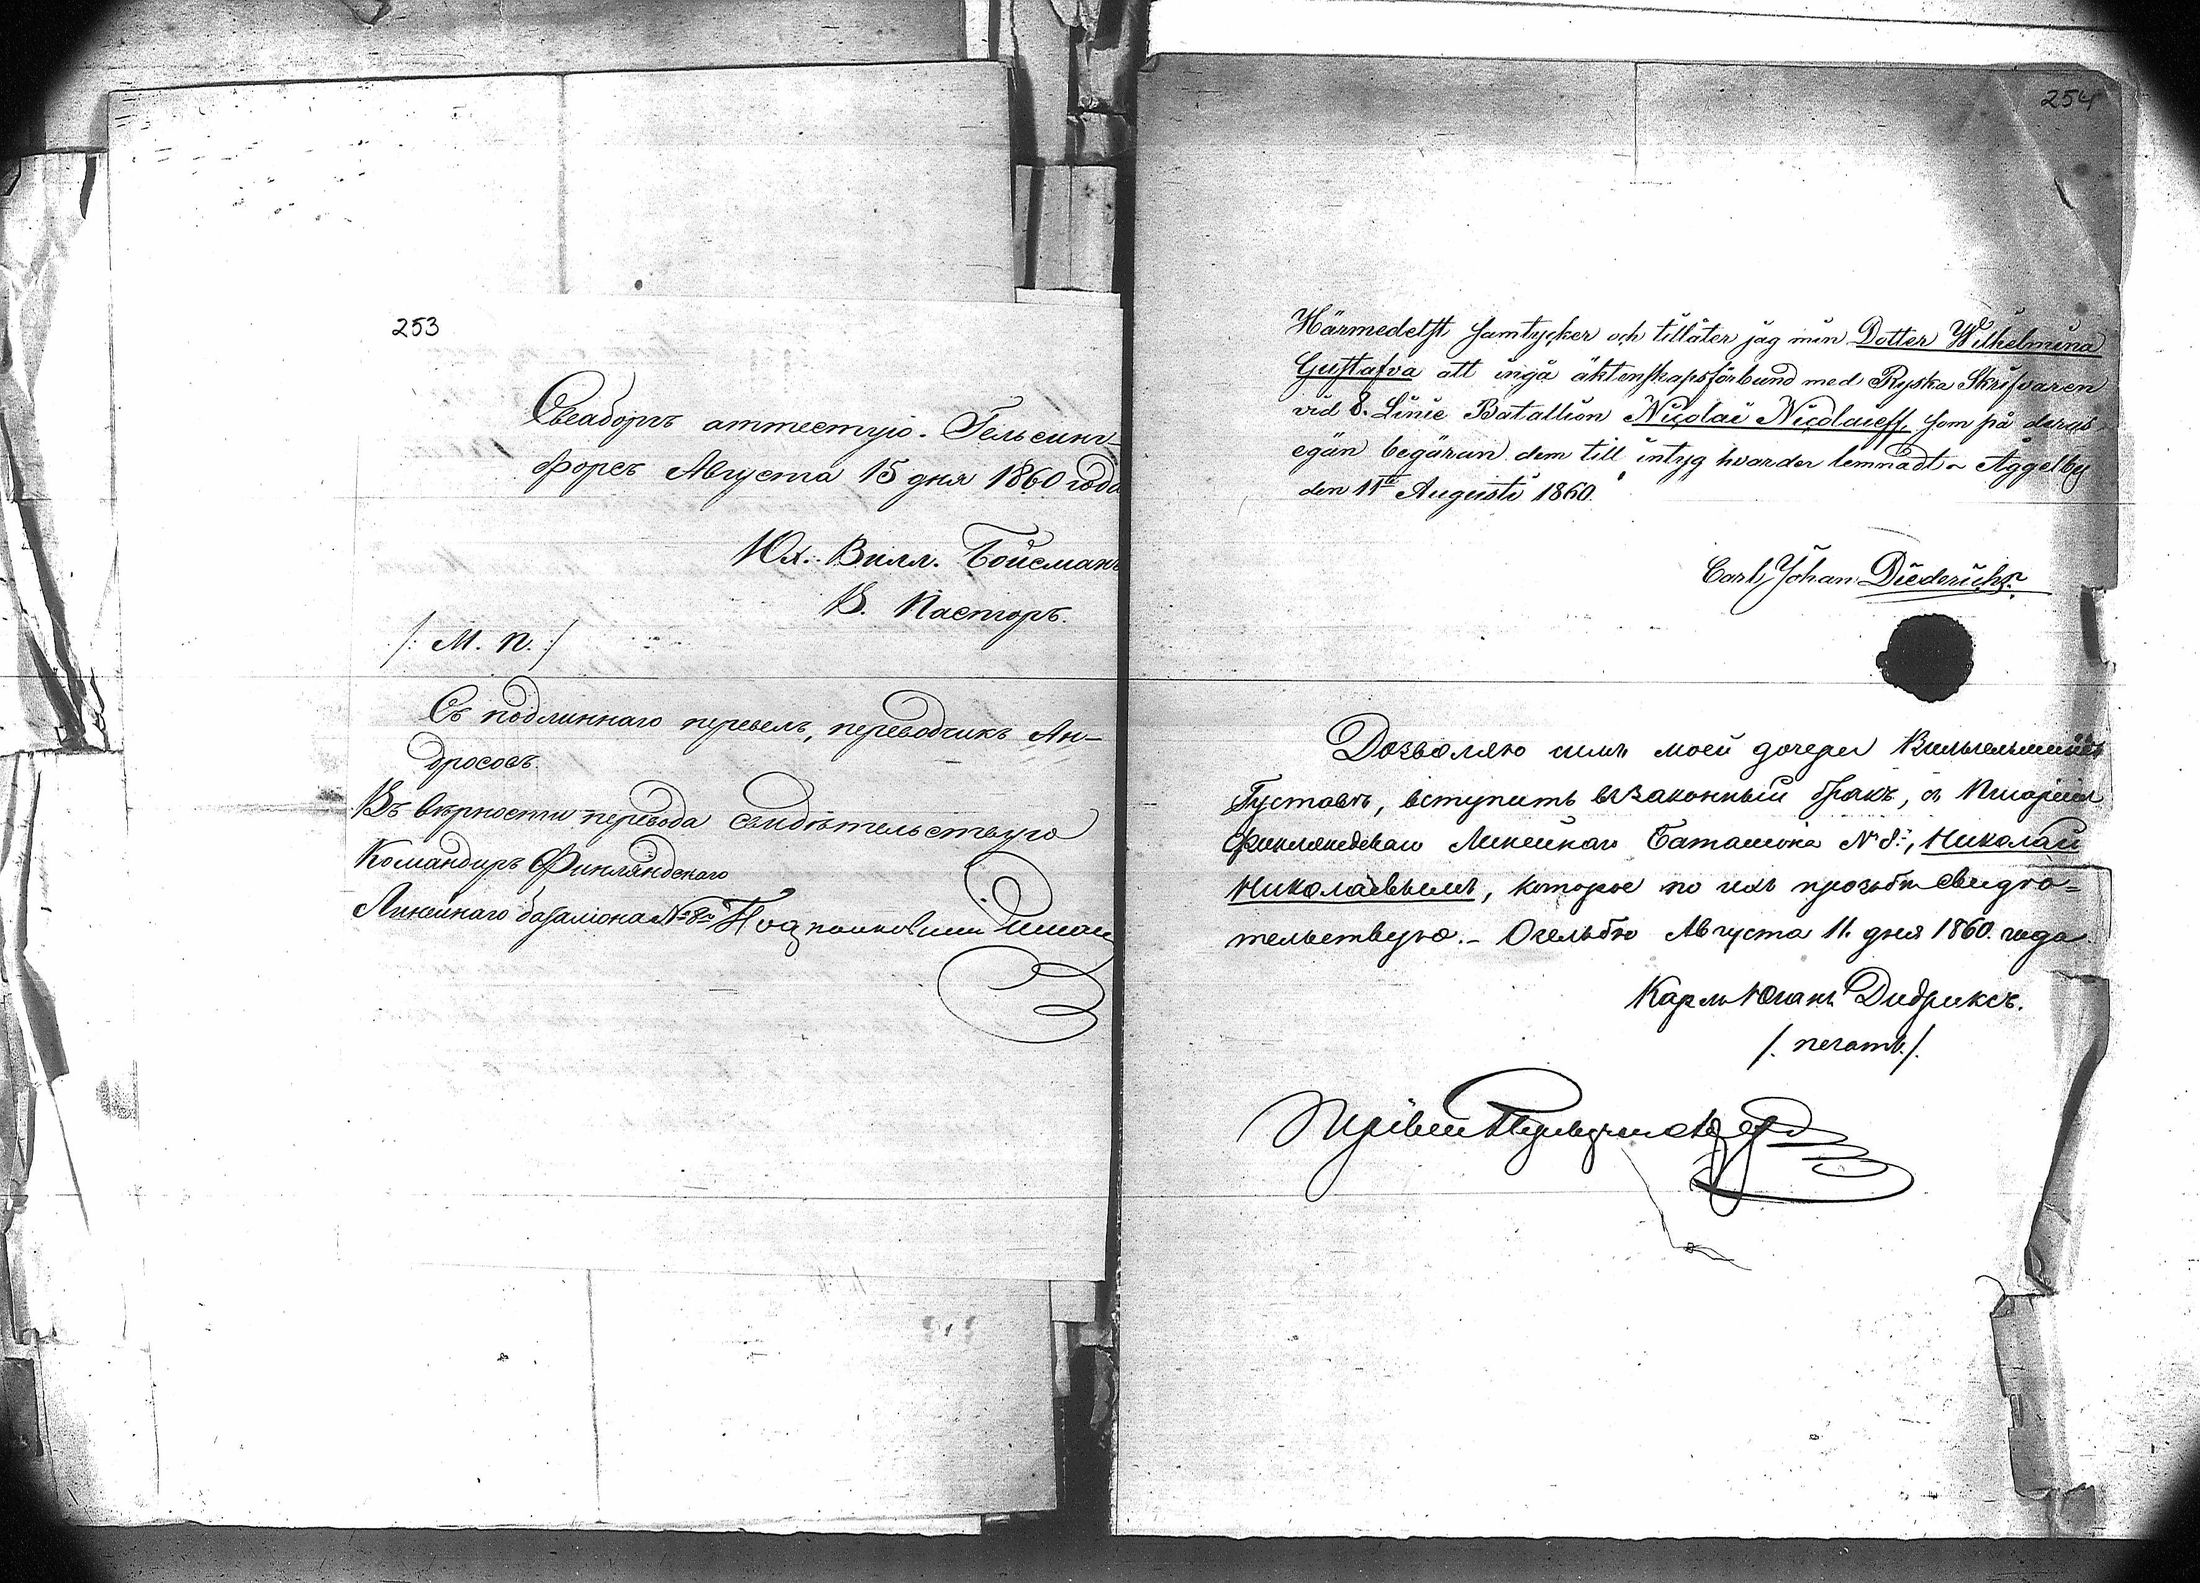 253
Свеаборгъ аттестую. Гельсинг-
форсъ Августа 15 дня 1860 года
Юх. Вилл. Бойсманъ
В. Пасторъ.
/: М. П. :/
Съ подлиннаго перевелъ, переводчикъ Ан-
дросовъ.
Въ вѣрности перевода свидѣтельствую
Командиръ Финляндскаго
Линейнаго баталіона № 8го Подполковникъ
254
Härmedelst samtycker och tillåter jag min Dotter Wilhelmina
Gustafva att ingå äktenskapsförbund med Ryska Skrifvaren
vid 8. Linie Batallion Nicolai Nicolaieff, som på deras
egän begäran dem till intyg hvarder lemnadt ~ Åggelby
den 11te Augusti 1860.
Carl Johan Diederichs.
Дозволяю симъ моей дочери Вильгельминѣ
Густавѣ, вступить въ законный бракъ, съ Писаремъ
Финляндскаго Линейнаго Баталіона № 8., Николай
Николаевымъ, которое по ихъ прозьбѣ свидѣ=
тельствую. - Огельбю Августа 11. дня 1860. года.
Карлъ Юганъ Дидриксъ.
/. печать. /.